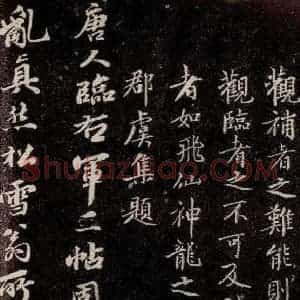 觀補者之難能則
觀臨者之不可及
者如飛仙神龍之
郡虞集題
唐人臨右軍三帖周
亂真然松雪翁所